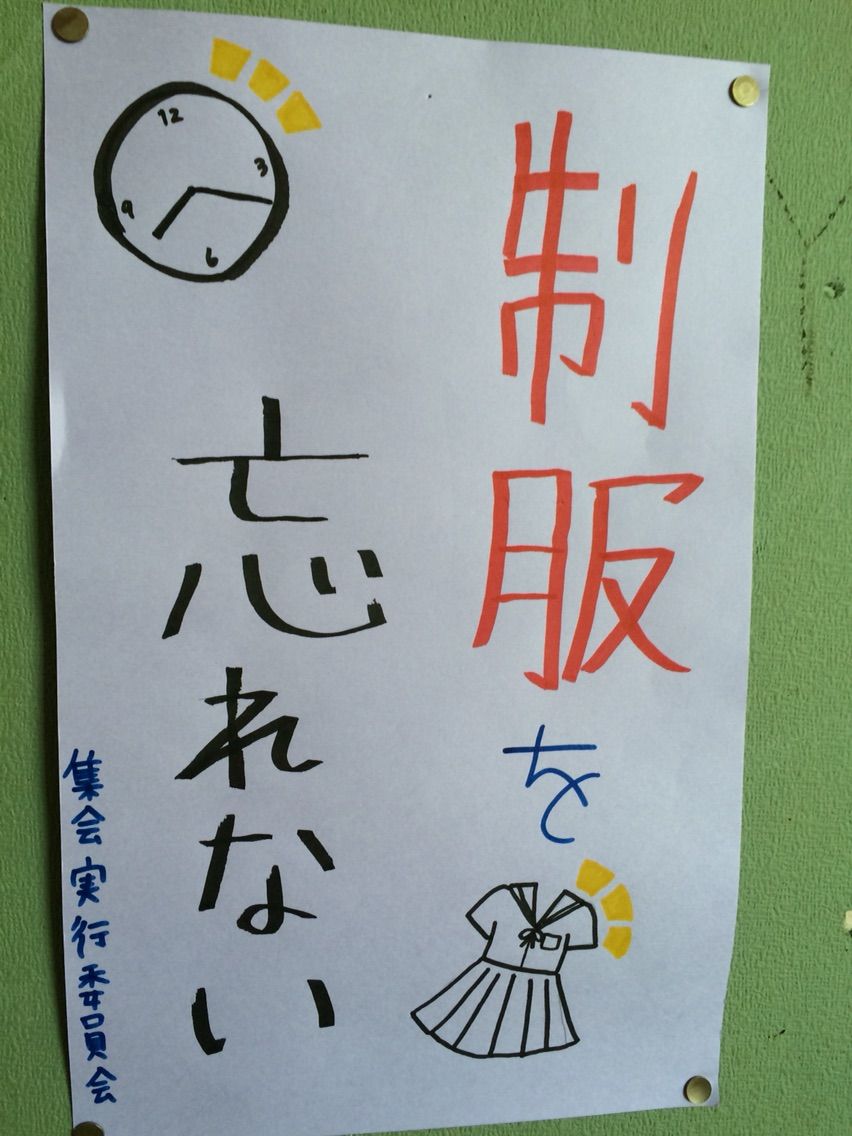 制服を
忘れない
集会実行委員会
12
3
6
9